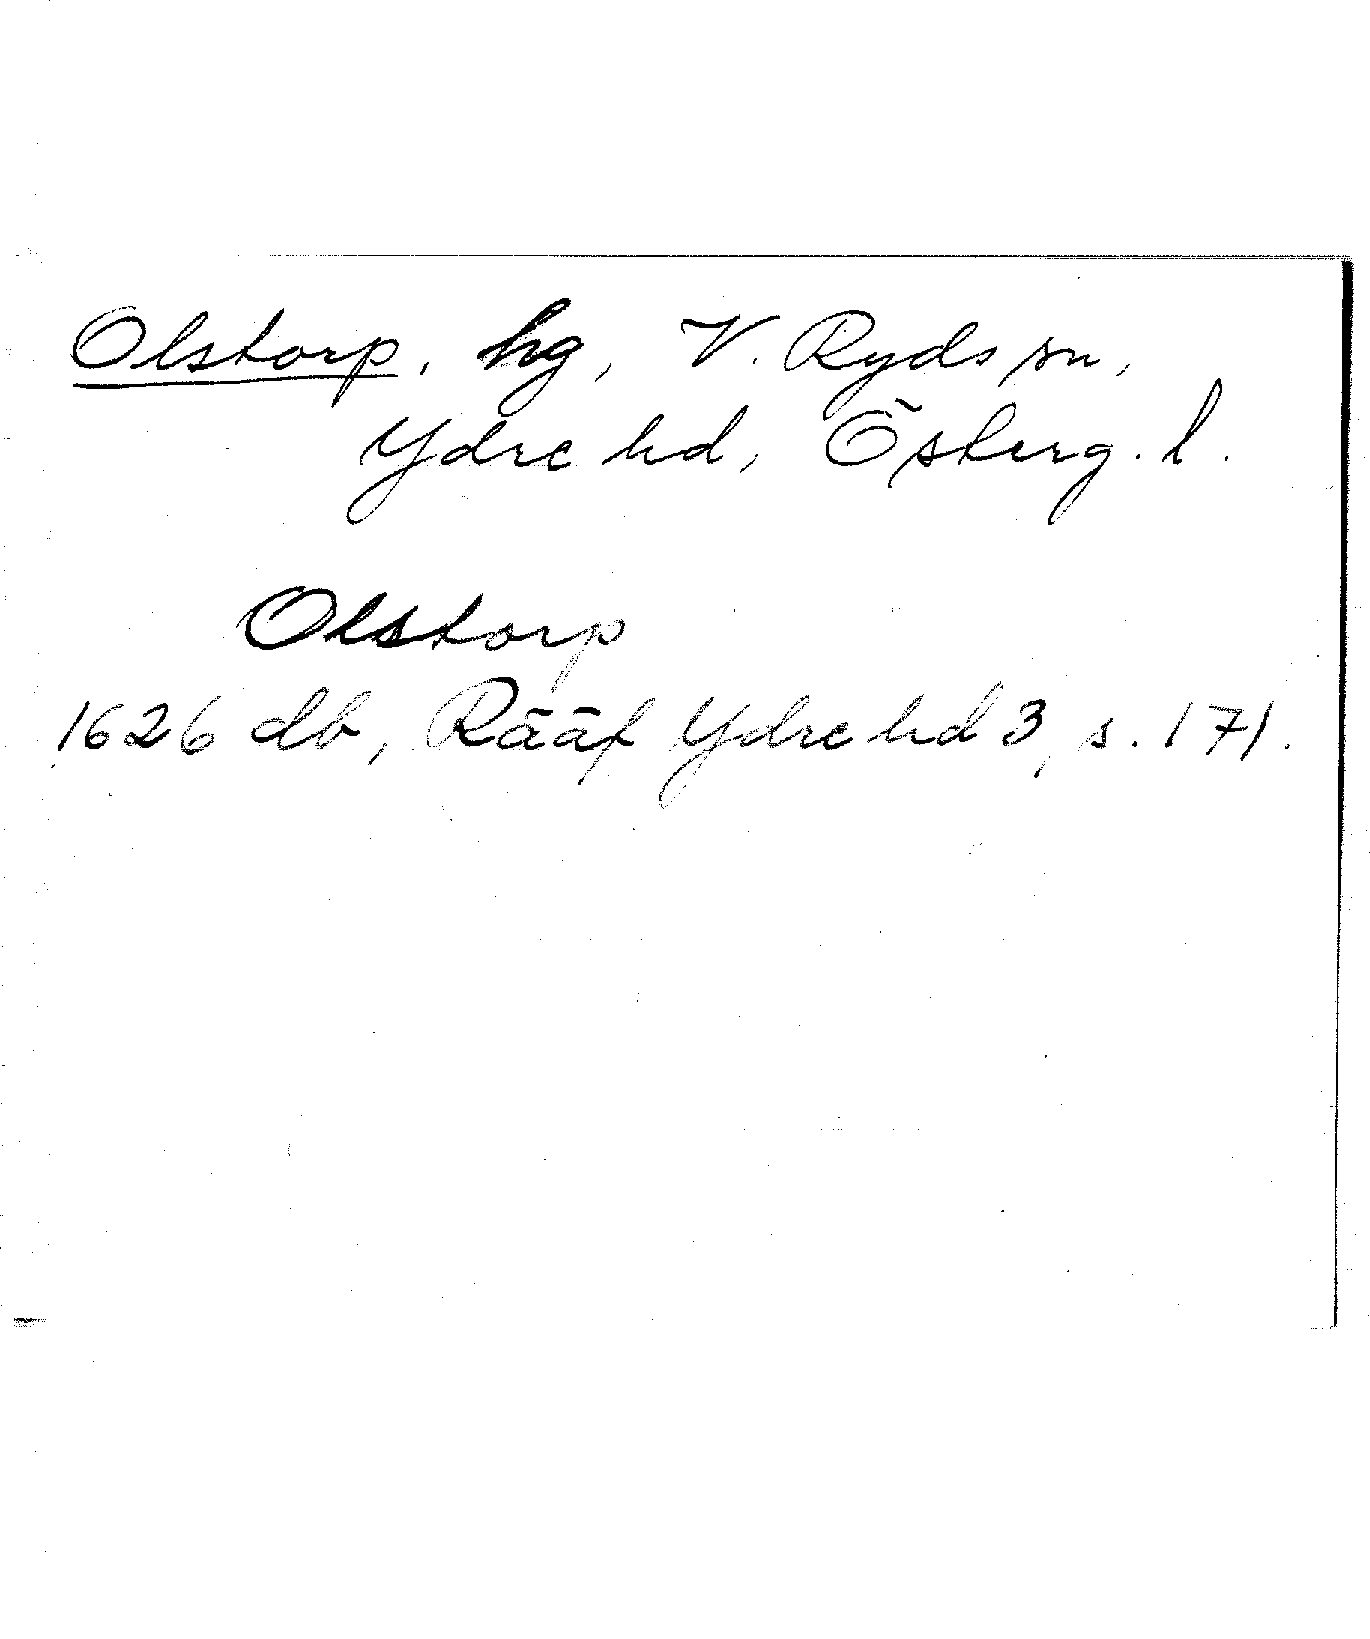 Olstorp, hg, V. Ryds sn,
Ydre hd, Österg. l.
Olstorp
1626 db, Rääf Ydre hd 3, s. 171.